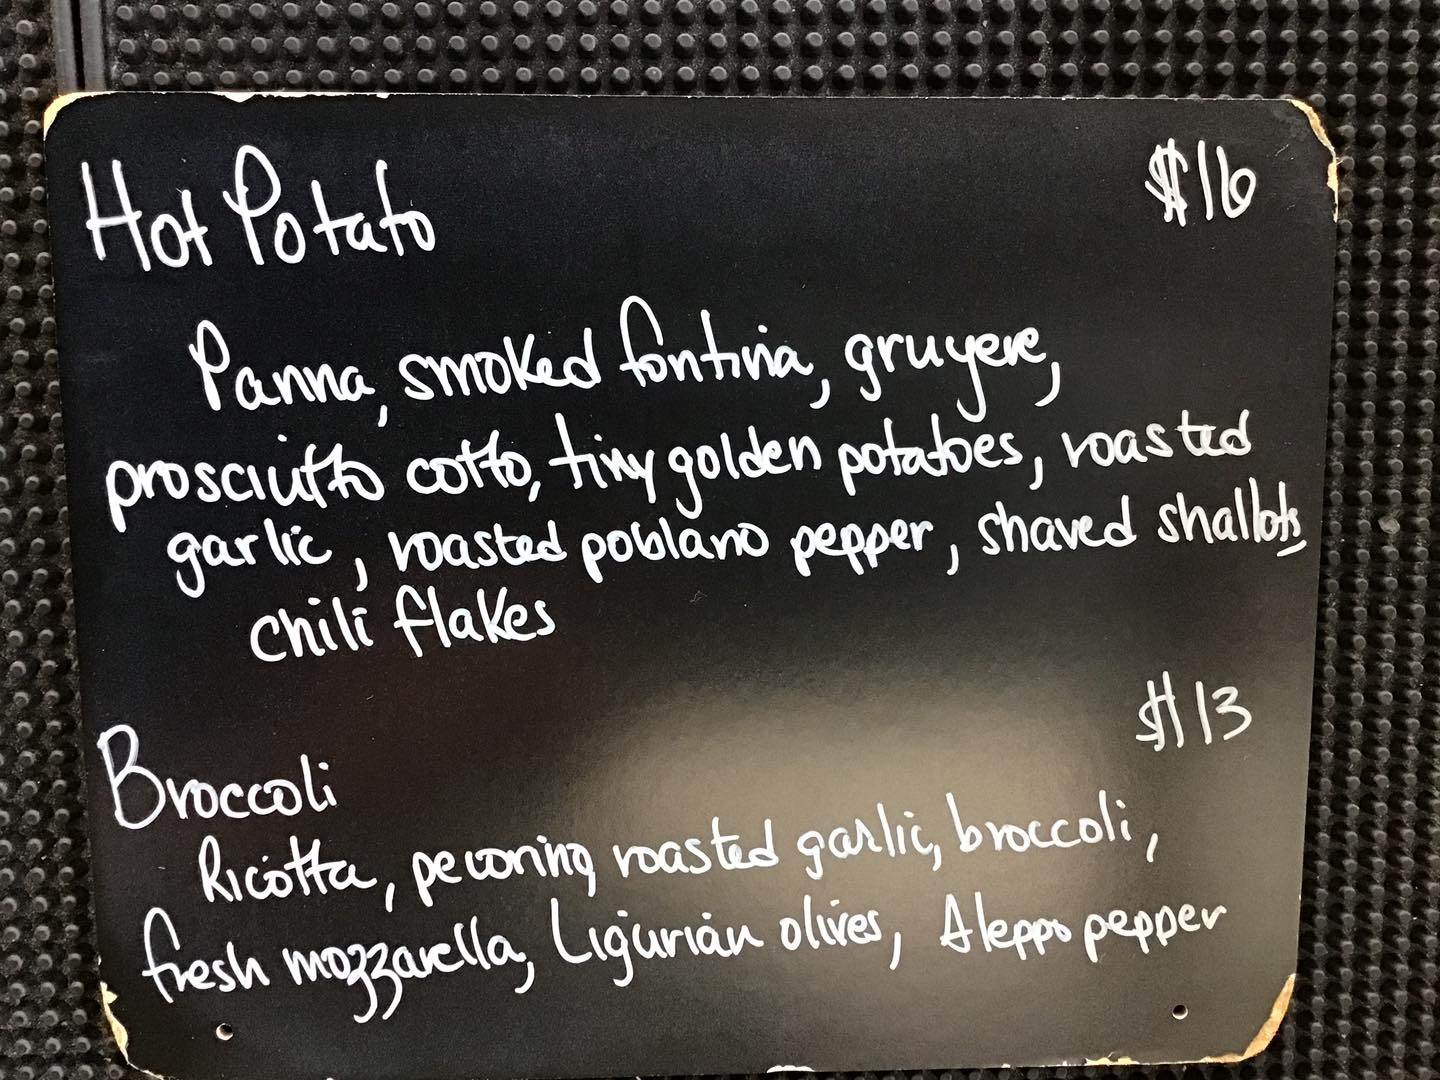 Hot Potato $16
Panna, smoked fontina, gruyere,
prosciutto cotto, tiny golden potatoes, roasted
garlic, roasted poblano pepper, shaved shallots,
chili flakes
$13
Broccoli
Ricotta, pecorino, roasted garlic, broccoli,
fresh mozzarella, Ligurian olives, Aleppo pepper